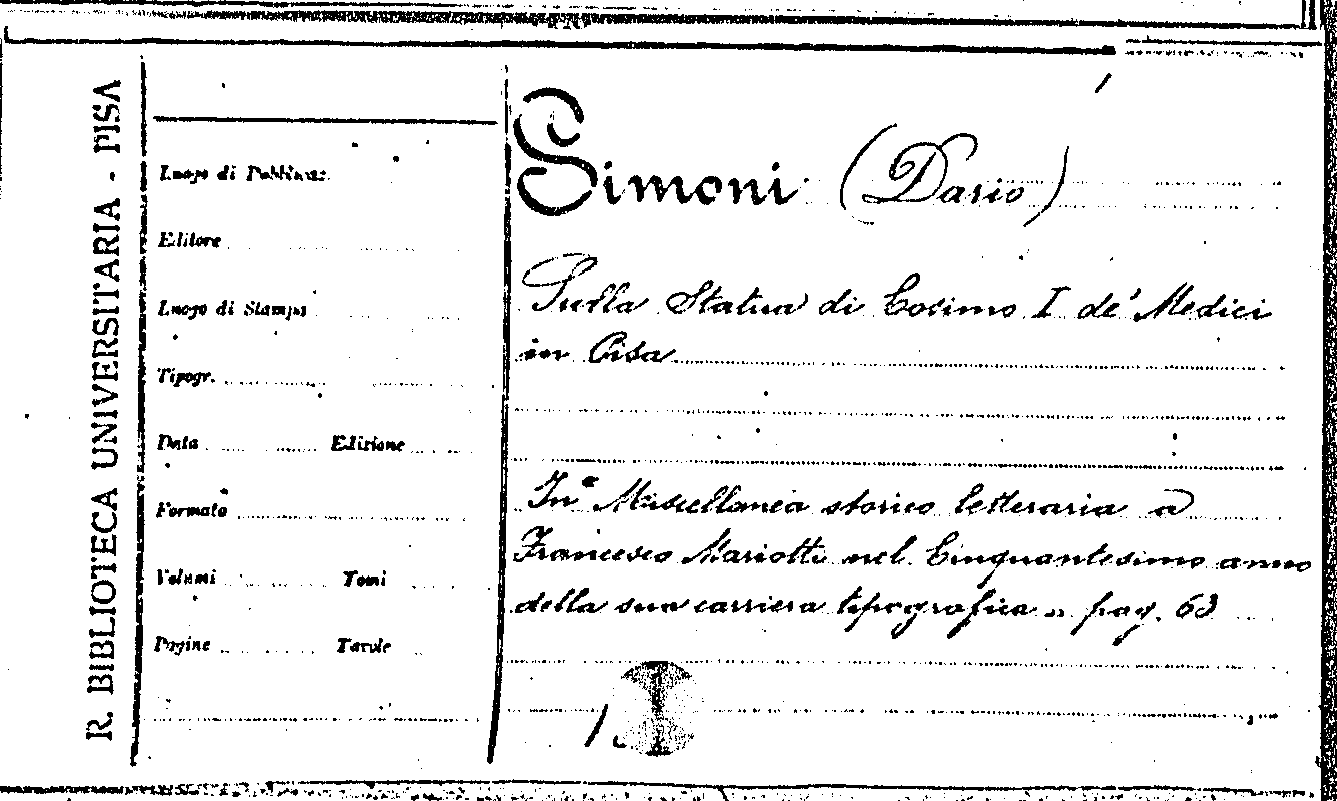 R. BIBLIOTECA UNIVERSITARIA - PISA
Luogo di Pubblicaz.
Editore
Luogo di Stampa
Tipogr.
Data Edizione
Formato
Volumi Tomi
Pagine Tavole
Simoni (Dario)
Sulla Statua di Cosimo I de' Medici
in Pisa
In " Miscellanea storico letteraria a
Francesco Mariotti nel Cinquantesimo anno
della sua carriera tipografica " pag. 63